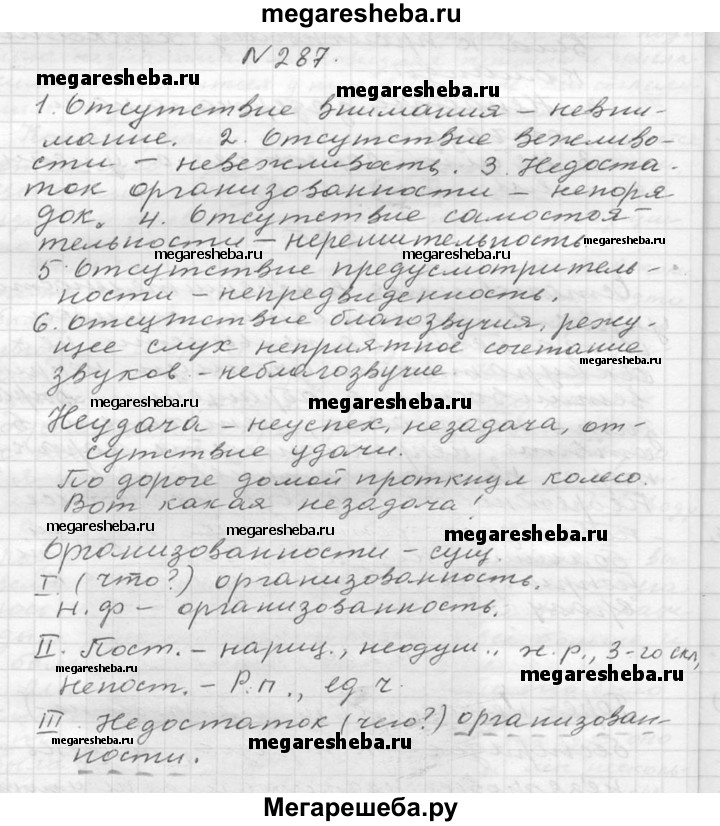 megaresheba.ru
N 287.
megaresheba.ru
megaresheba.ru
1. Отсутствие внимания – невни-
мание. 2. Отсутствие вежливо-
сти – невежливость. 3. Недоста-
ток организованности – непоря
док. 4. Отсутствие самостоя-
тельности – нерешительность
megaresheba.ru
5. Отсутствие предусмотритель-
ности – непредвиденность.
6. Отсутствие благозвучия, режу-
щее слух неприятное сочетание
звуков – неблагозвучие.
megaresheba.ru
megaresheba.ru
megaresheba.ru
Неудача – неуспех, незадача, от-
сутствие удачи.
По дороге домой проткнул колесо.
Вот какая незадача!
megaresheba.ru
megaresheba.ru
megaresheba.ru
Организованности – сущ.
I. (что?) организованность.
н.ф – организованность.
megaresheba.ru
II. Пост. – нариц., неодуш., ж.р., 3-го скл,
megaresheba.ru
megaresheba.ru
Непост. – Р.п., ед.ч.
III. Недостаток (чего?) организован-
ности.
megaresheba.ru
megaresheba.ru
megaresheba.ru
Мегарешеба.ру